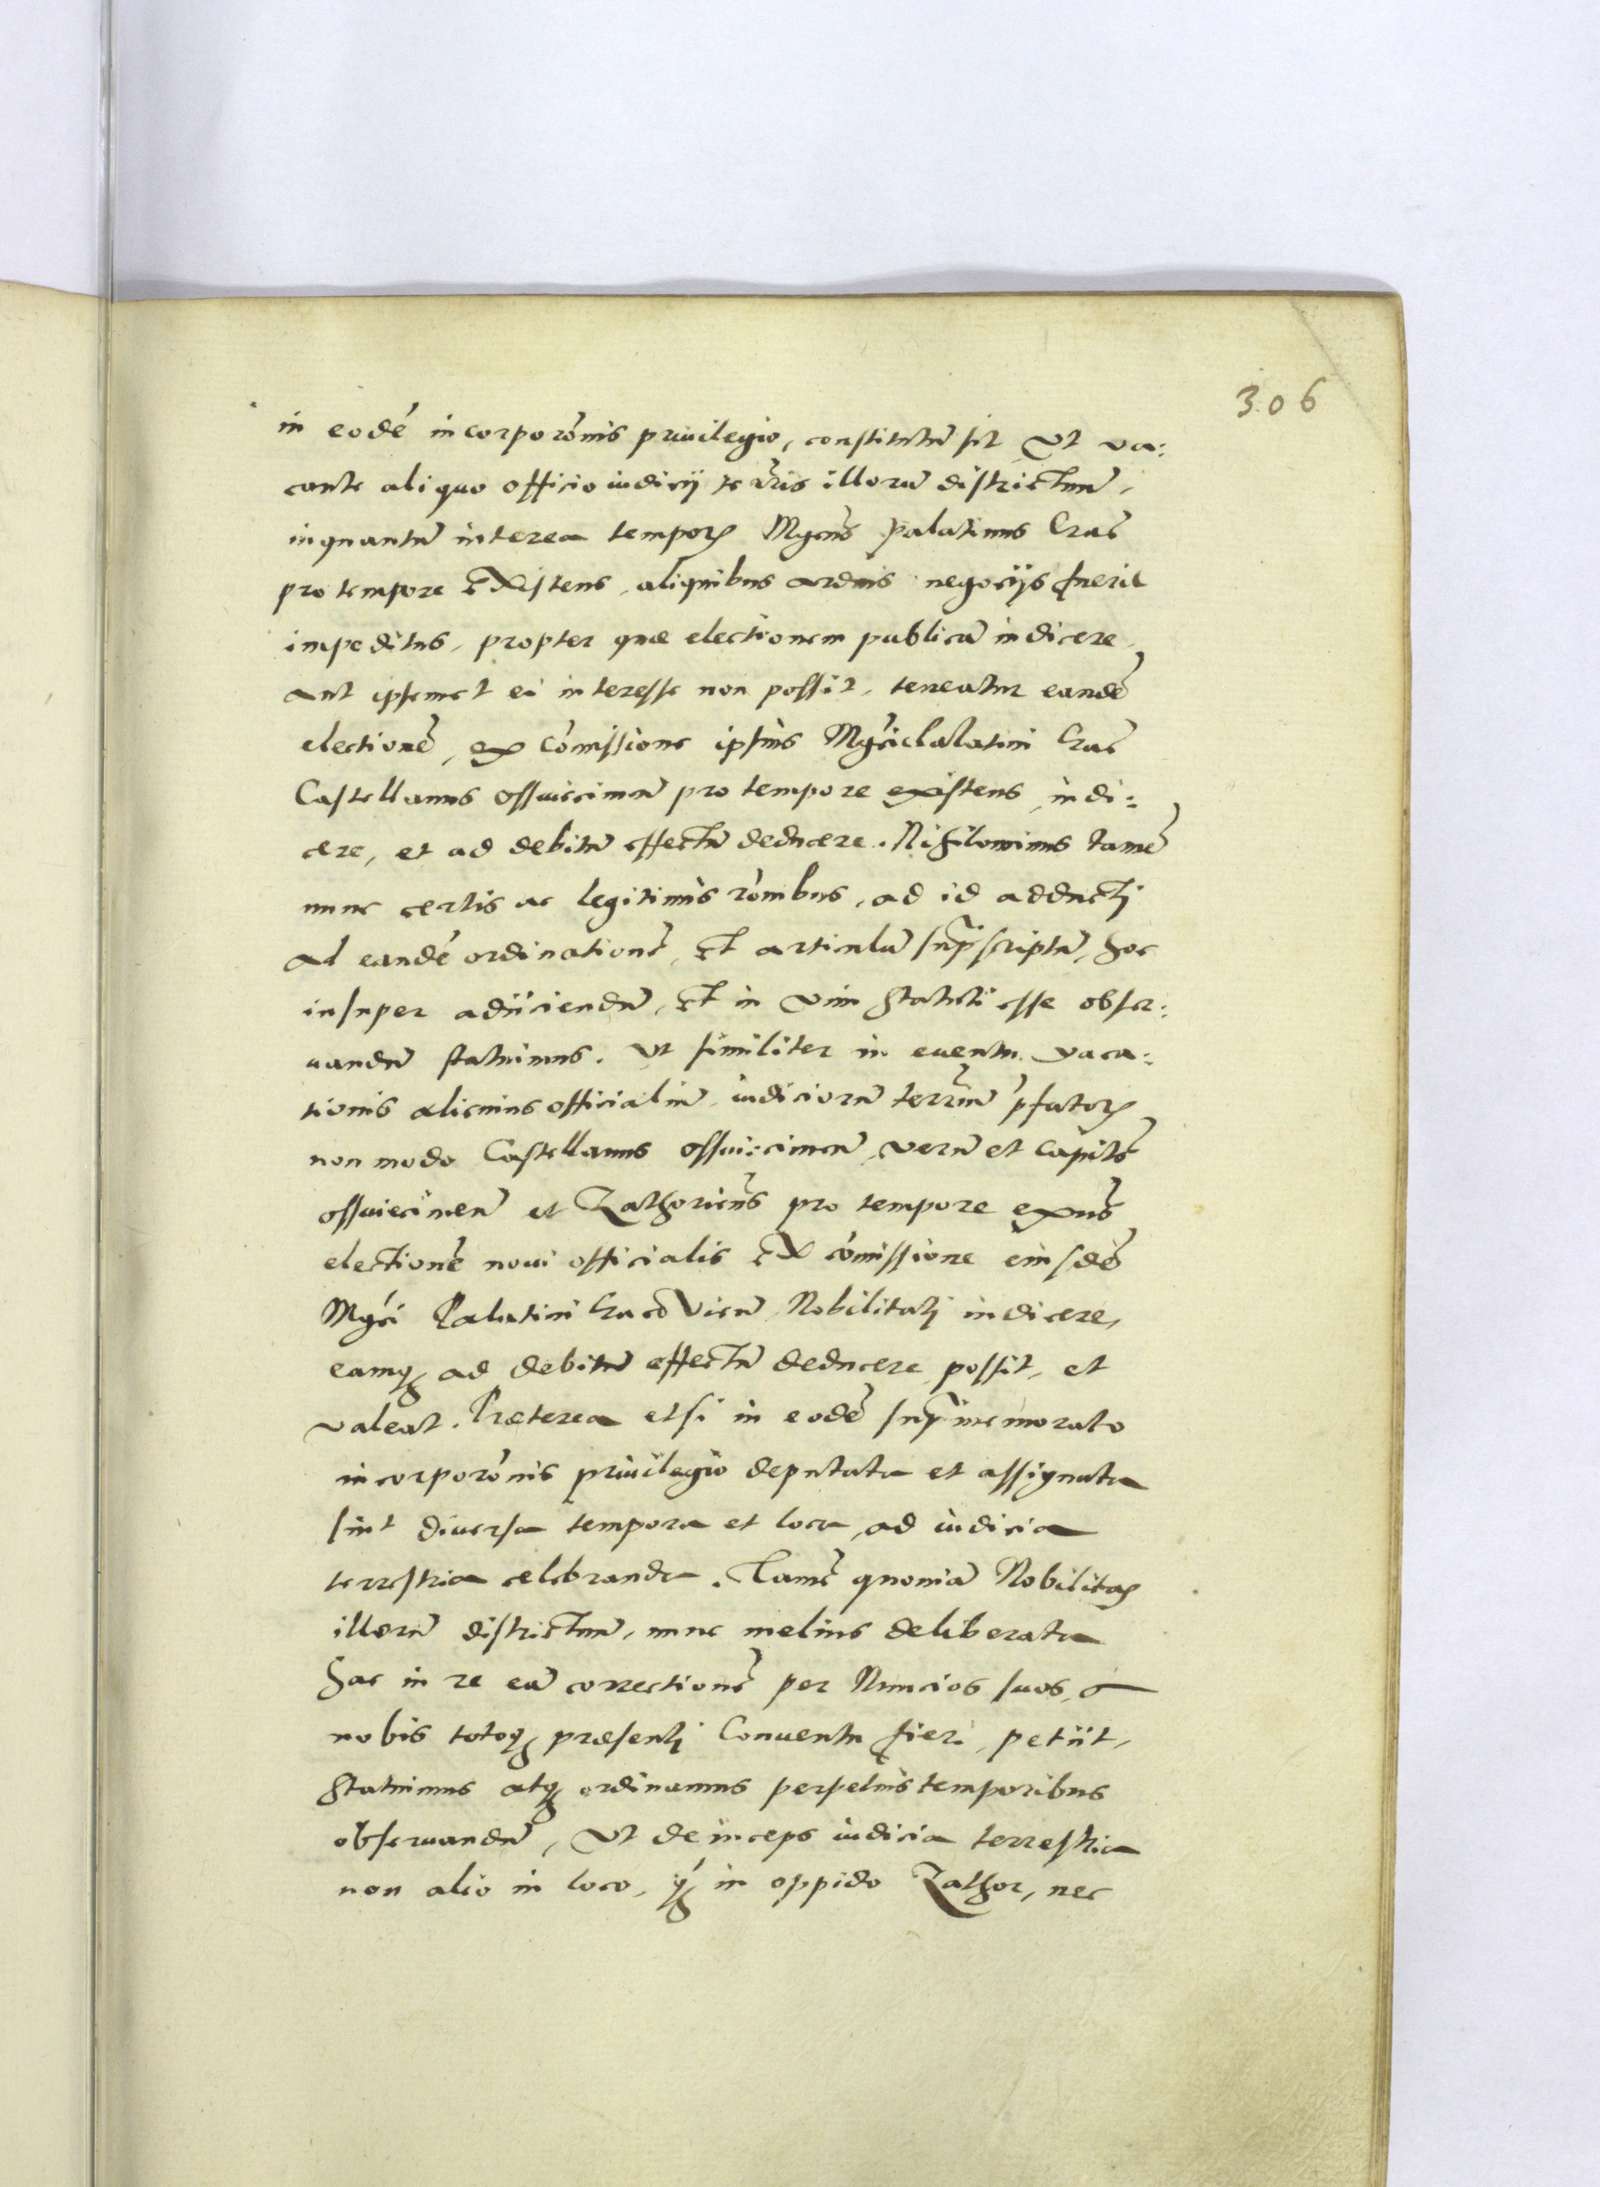 306
in eodē incorporōnis priuilegio, constitutū sit, Ut va:
cante aliquo officio iudicij terrīs illorū districtuū,
inquantū interea temporꝭ Mgcūs Palatinus Crac̄
pro tempore Existens, aliquibus arduis negocijs fuerit
impeditus, propter quæ electionem publicā indicere,
aut ipsemet ei interesse non possit, teneatur eandē
electionē, ex cōmissione ipsius Mgci Palatini Crac̄
Castellanus Ossuiecimen̄ pro tempore existens, indi:
cere, et ad debitū effectū deducere. Nihilominus tamē
nunc certis ac legitimis rōnibus, ad id adducti
ad eandē ordinationē, Et articulū supͣscriptū, hoc
insuper adijciendū, Et in vim statuti esse obser:
uandū statuimus. Ut similiter in euentu vaca:
tionis alicuius officialiū, iudiciorū terrīm p̄fatorꝭ
non modo Castellanus Ossuiecimen̄, verū et Capitē
ossuiecimen̄ et Zathorien̄s pro tempore exn̄s
electionē noui officialis Ex cōmissione eiusdē
Mgci Palatini Cracouien̄ Nobilitati indicere,
eamqꝫ ad debitū effectū deducere possit, et
valeat. Præterea etsi in eodē supͣmemorato
incorporōnis priuilegio deputata et assignata
sint diuersa tempora et loca, ad iudicia
terrestria celebranda. Tamē quoniā Nobilitas
illorū districtuū, nunc melius deliberata
hac in re eā correctionē per Nuncios suos, a
nobis totoqꝫ præsenti Conuentu fieri petijt,
Statuimus atqꝫ ordinamus perpetuis temporibus
obseruandū, Ut deinceps iudicia terrestria
non alio in loco, qꝫ́ in oppido Zathor, nec